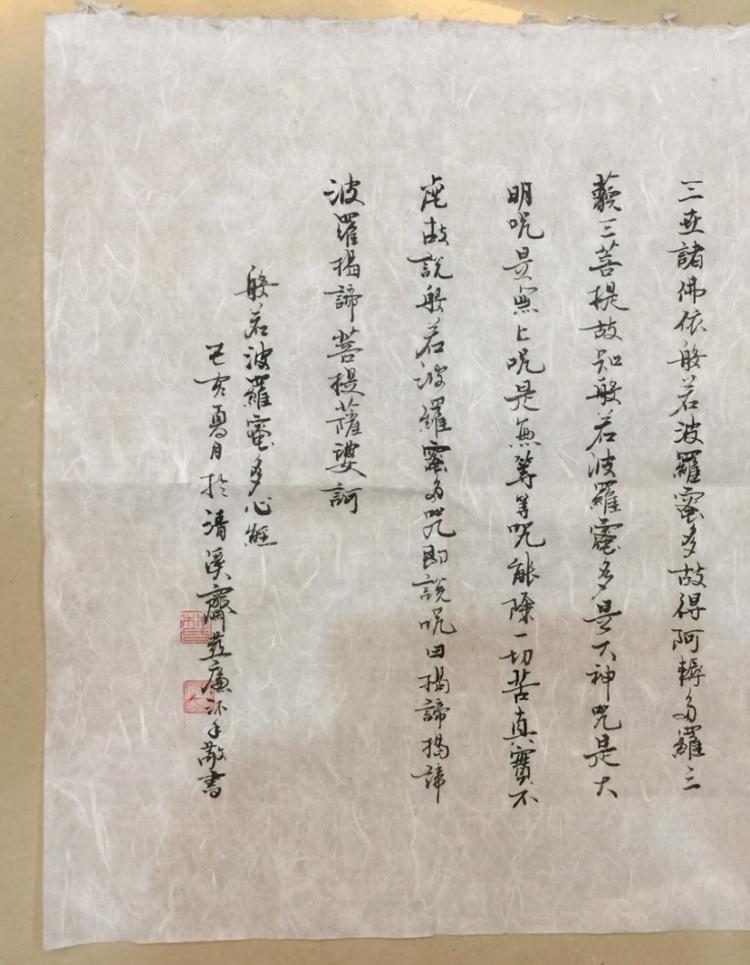 三世諸佛依般若波羅蜜多故得阿耨多羅三
藐三菩提故知般若波羅蜜多是大神咒是大
明咒是無上咒是無等等咒能除一切苦真實不
虛故說般若波羅蜜多咒即說咒曰揭諦揭諦
波羅揭諦菩提薩婆訶
般若波羅蜜多心經
己亥夏月於清溪齋 沐手敬書